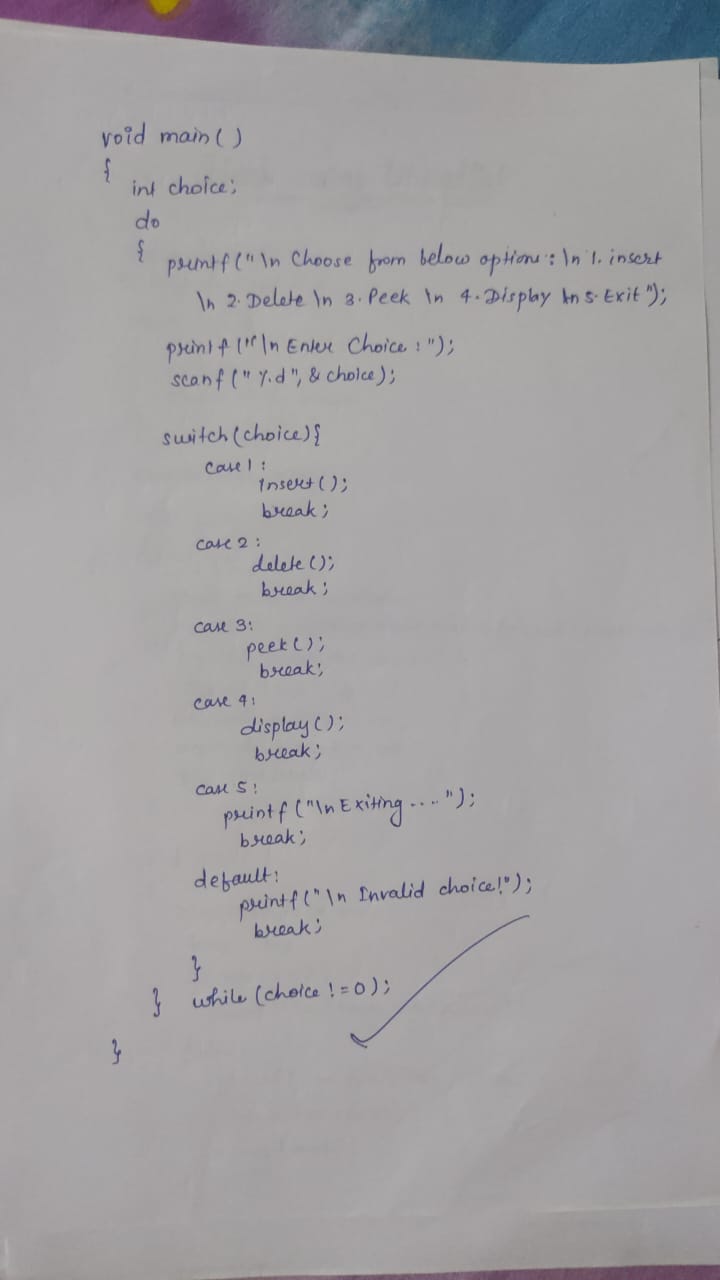 void main()
{
int choice;
do
{
printf("\n Choose from below options: \n 1. insert
\n 2. Delete \n 3. Peek \n 4. Display \n 5. Exit");
printf("\n Enter Choice : ");
scanf("%d", & choice);
switch(choice){
case 1 :
insert();
break;
case 2 :
delete();
break;
case 3:
peek();
break;
case 4:
display();
break;
case 5:
printf("\n Exiting ....");
break;
default:
printf("\n Invalid choice!");
break;
}
} while (choice != 0);
}